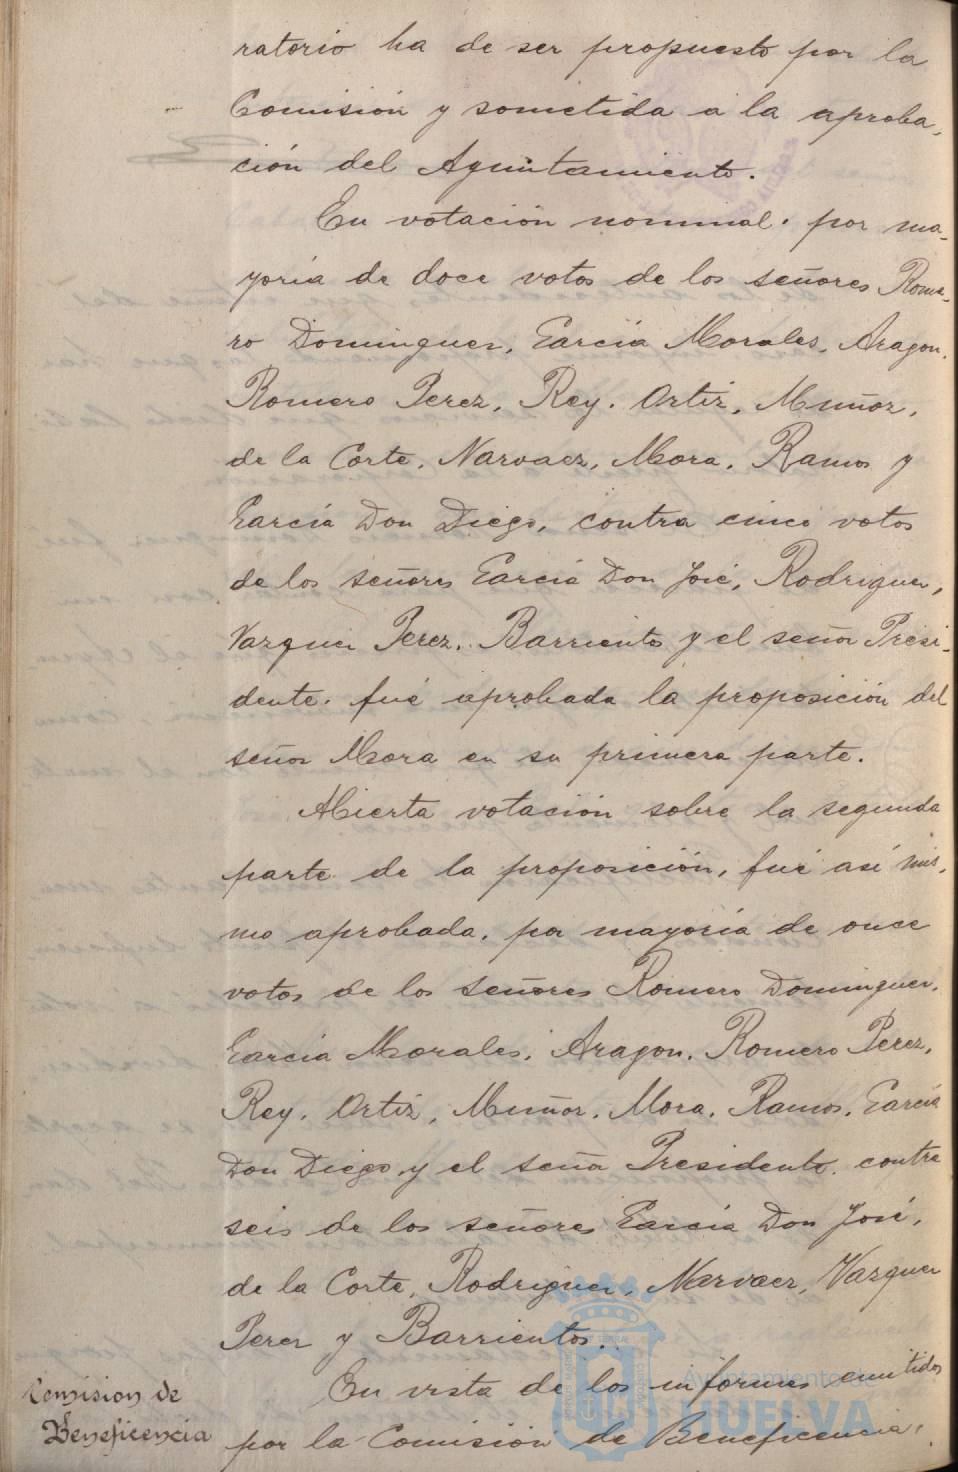 ratorio ha de ser propuesto por la
Comisión y sometida a la aproba-
ción del Ayuntamiento.
En votación nominal, por ma-
yoría de doce votos de los señores Rome-
ro Dominguez, García Morales, Aragon,
Romero Perez, Rey, Ortiz, Muñoz,
de la Corte, Narvaez, Mora, Ramos y
García Don Diego, contra cinco votos
de los señores García Don José, Rodriguez,
Vazquez Perez, Barrientos y el señor Presi-
dente, fué aprobada la proposición del
señor Mora en su primera parte.
Abierta votación sobre la segunda
parte de la proposición, fué así mis-
mo aprobada, por mayoría de once
votos de los señores Romero Dominguez,
García Morales, Aragon, Romero Perez,
Rey, Ortiz, Muñoz, Mora, Ramos, García
Don Diego y el señor Presidente, contra
seis de los señores García Don José,
de la Corte, Rodriguez, Narvaez, Vazquez
Perez y Barrientos.
Comision de
Beneficencia
En vista de los informes emitidos
por la Comisión de Beneficencia,
Ayuntamiento de
HUELVA